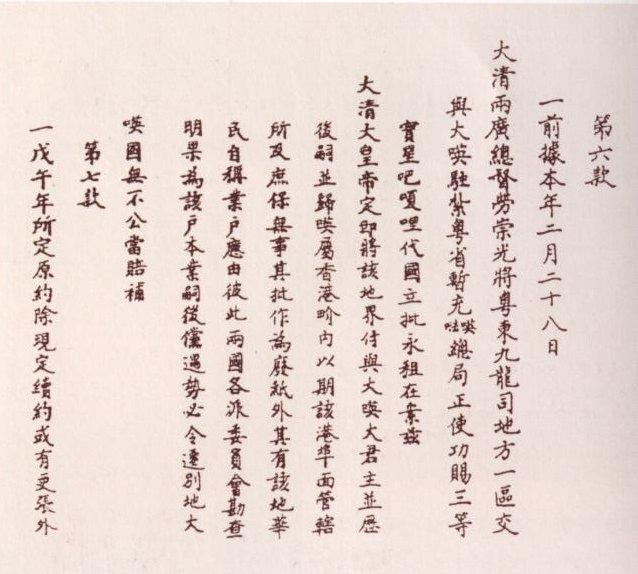 第六款
一前據本年二月二十八日
大清兩廣總督勞崇光將粵東九龍司地方一區交
與大𠸄駐紮粵省暫充𠸄㕸總局正使功賜三等
寶星吧嗄哩代國立批永租在案茲
大清大皇帝定即將該地界付與大𠸄大君主並歷
後嗣並歸𠸄屬香港界內以期該港埠面管轄
所及庶保無事其批作為廢紙外其有該地華
民自稱業户應由彼此兩國各派委員會勘查
明果為該户本業嗣後儻遇勢必令遷別地大
𠸄國無不公當賠補
第七款
一戊午年所定原約除現定續約或有更張外